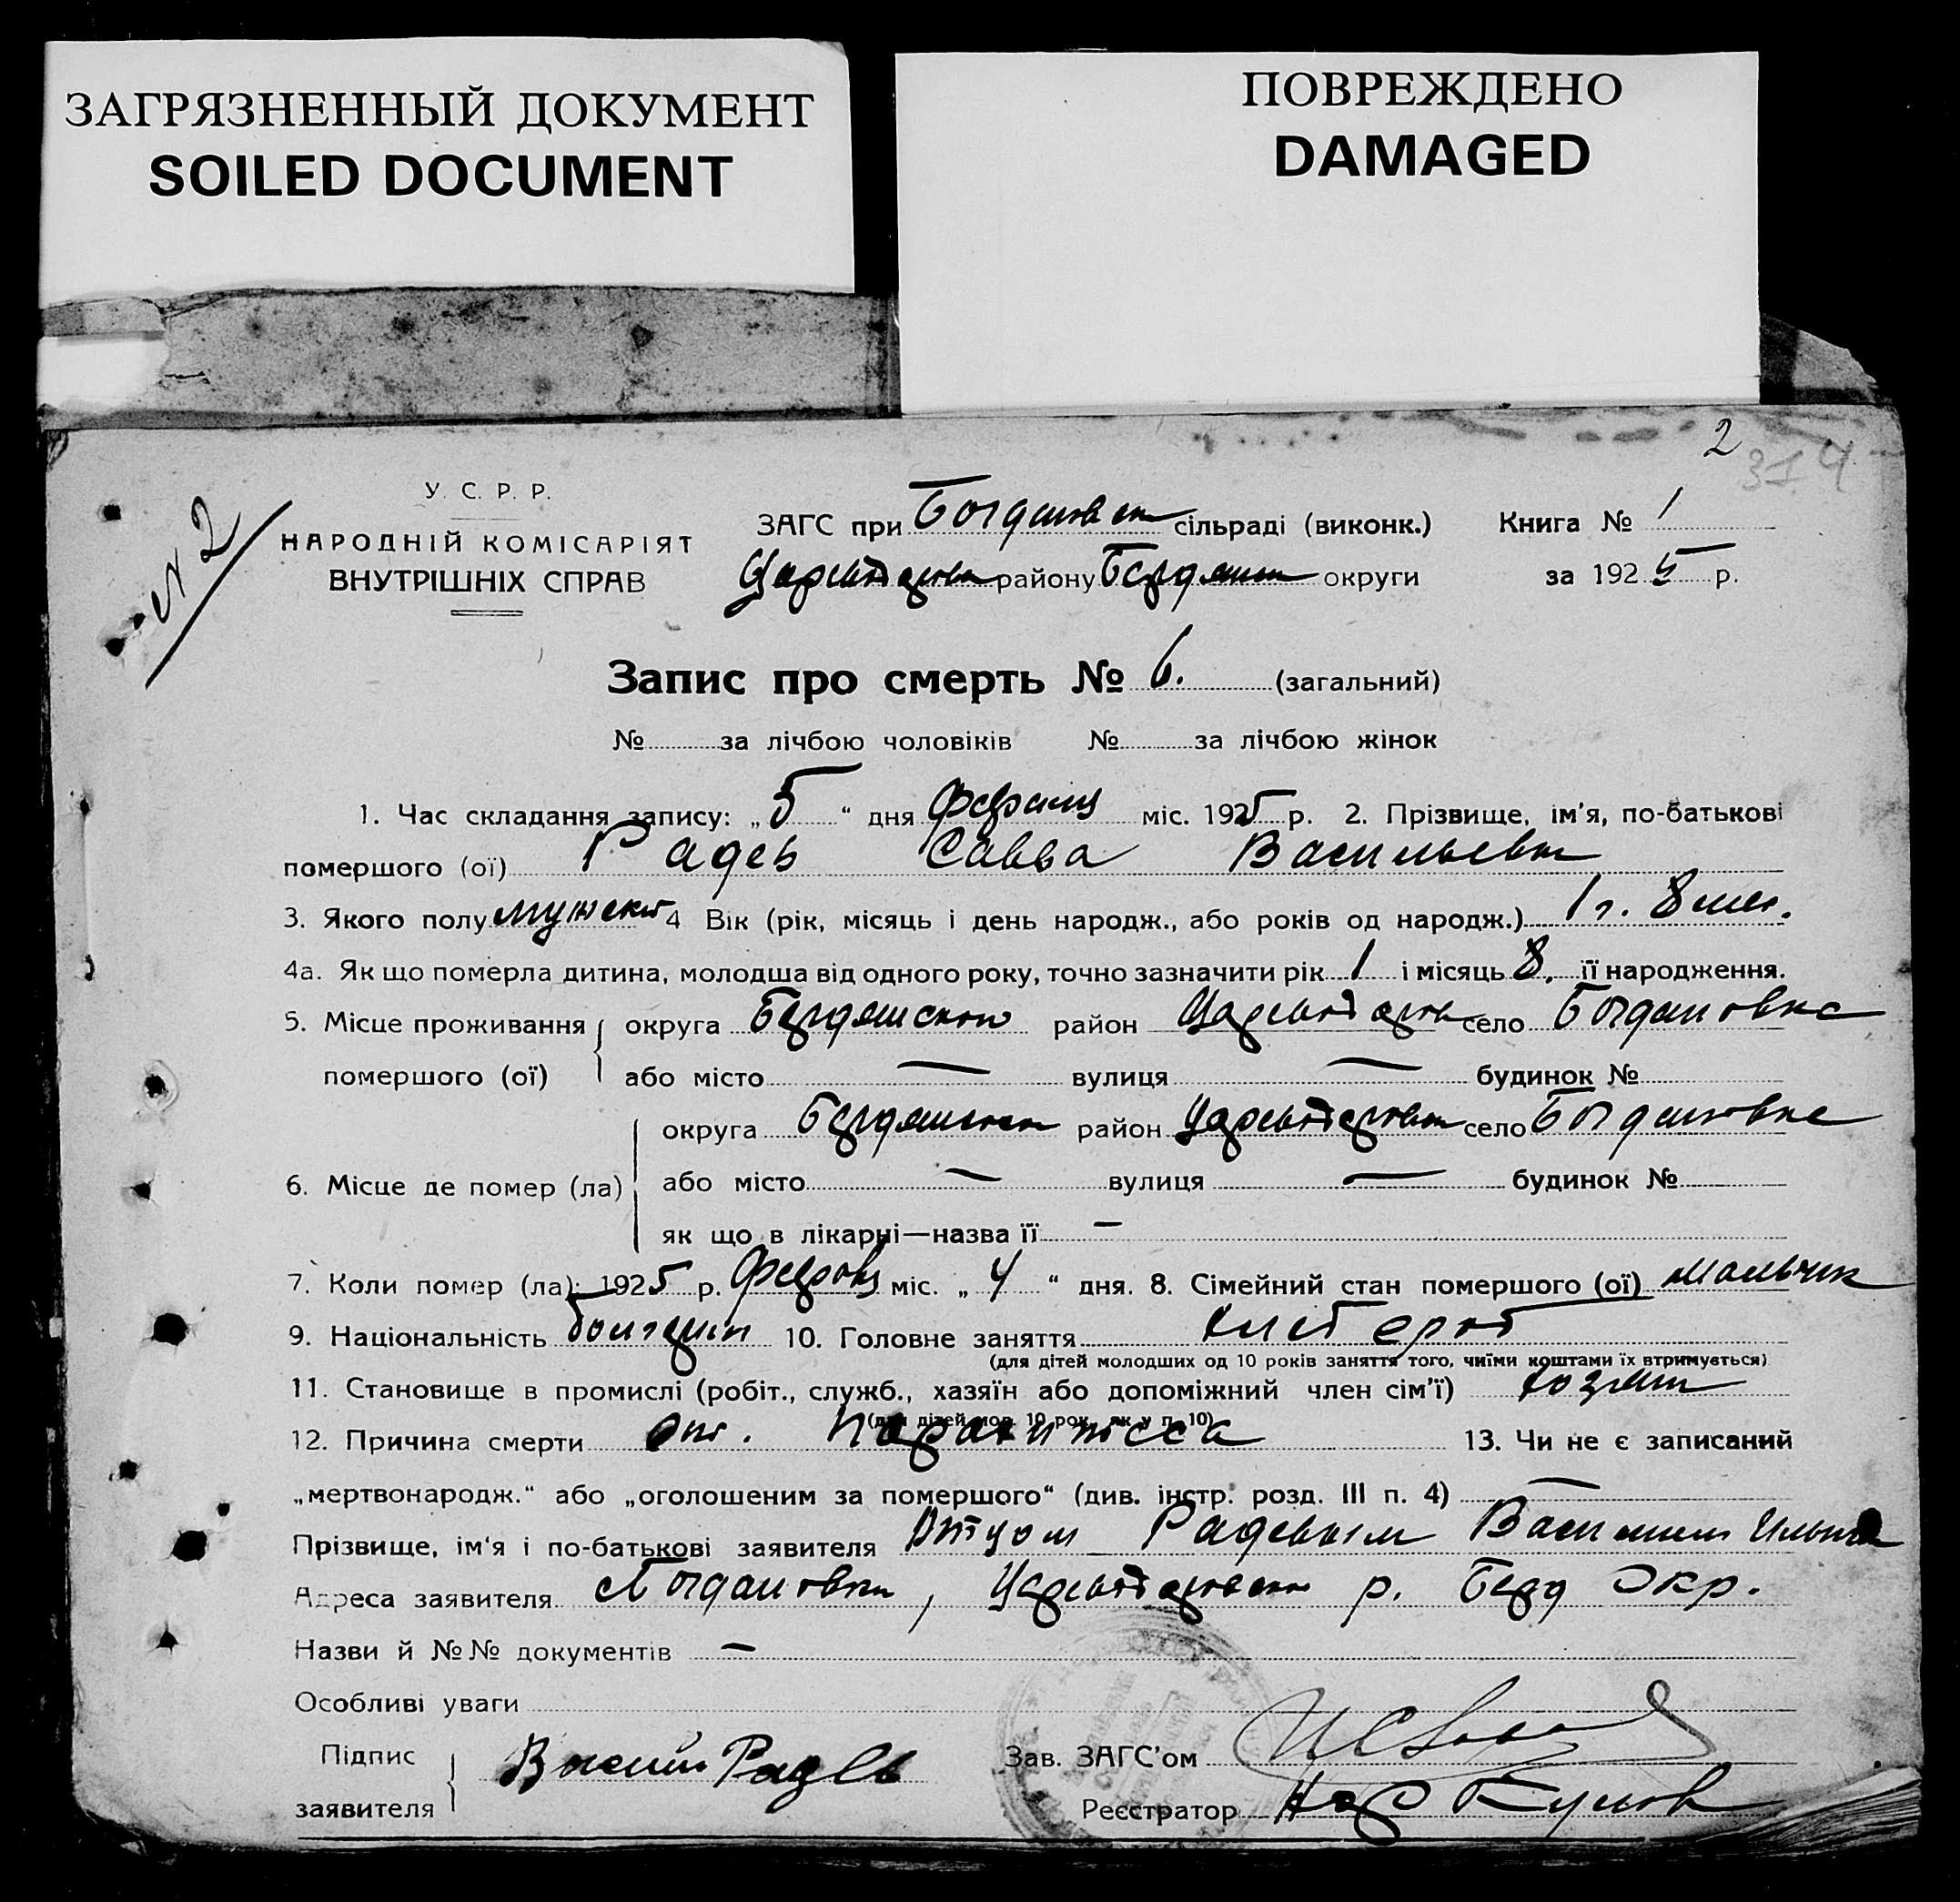 ЗАГРЯЗНЕННЫЙ ДОКУМЕНТ
SOILED DOCUMENT
ПОВРЕЖДЕНО
DAMAGED
2
№ 2
У. С. Р. Р.
НАРОДНІЙ КОМІСАРІЯТ
ВНУТРІШНІХ СПРАВ
ЗАГС при Богдановск сільраді (виконк.) Книга № 1
району Бердянск округи за 1925 р.
Запис про смерть № 6. (загальний)
№ за лічбою чоловіків № за лічбою жінок
1. Час складання запису: „5“ дня февраля міс. 1925 р. 2. Прізвище, ім'я, по-батькові
помершого (ої) Радев Савва Васильевич
3. Якого полу мужской 4 Вік (рік, місяць і день народж., або років од народж.) 1 г. 8 мес.
4а. Як що померла дитина, молодша від одного року, точно зазначити рік 1 і місяць 8, її народження.
5. Місце проживання округа Бердянском район село Богдановка
помершого (ої) або місто — вулиця — будинок №
6. Місце де помер (ла) округа Бердянском район село Богдановке
або місто — вулиця — будинок №
як що в лікарні—назва її —
7. Коли помер (ла): 1925 р. февраля міс. „4“ дня. 8. Сімейний стан помершого (ої) мальчик
9. Національність болгарин 10. Головне заняття хлебороб
(для дітей молодших од 10 років заняття того, чиїми коштами їх втримується)
11. Становище в промислі (робіт., служб., хазяїн або допоміжний член сім'ї) хозяин
(для дітей мол. 10 рок. як у п. 10)
12. Причина смерти от 13. Чи не є записаний
„мертвонародж.“ або „оголошеним за помершого“ (див. інстр. розд. III п. 4) —
Прізвище, ім'я і по-батькові заявителя Отцом Радевым Василием
Адреса заявителя Богдановки, р. Берд Окр.
Назви й №№ документів —
Особливі уваги
Підпис заявителя Василий Радев
Зав. ЗАГС'ом
Реєстратор